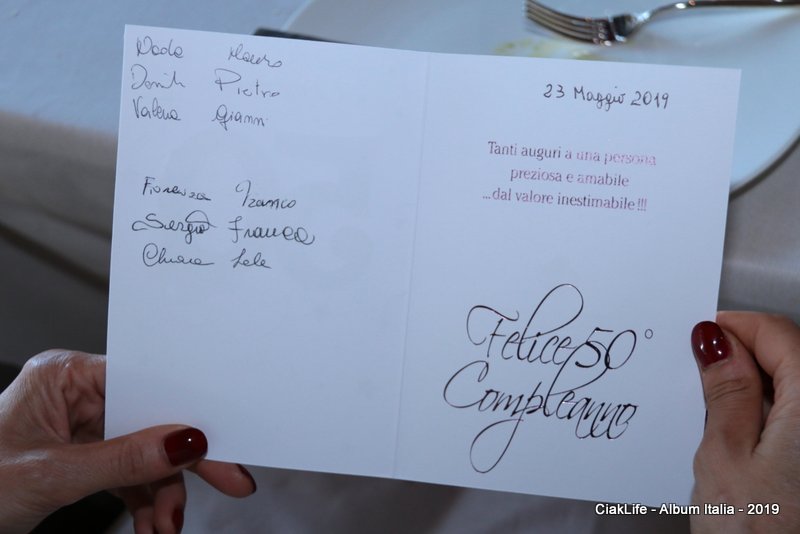 Mauro
Pietro
Valeria Gianni
Fiorenza Franco
Sergio Franca
Chiara Lele
23 Maggio 2019
Tanti auguri a una persona
preziosa e amabile
...dal valore inestimabile !!!
Felice 50°
Compleanno
CiakLife - Album Italia - 2019